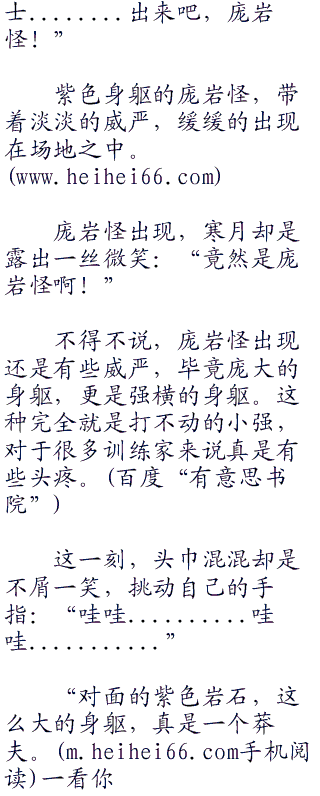 士........出来吧，庞岩
怪！”
紫色身躯的庞岩怪，带
着淡淡的威严，缓缓的出现
在场地之中。
(www.heihei66.com)
庞岩怪出现，寒月却是
露出一丝微笑：“竟然是庞
岩怪啊！”
不得不说，庞岩怪出现
还是有些威严，毕竟庞大的
身躯，更是强横的身躯。这
种完全就是打不动的小强，
对于很多训练家来说真是有
些头疼。(百度“有意思书
院”)
这一刻，头巾混混却是
不屑一笑，挑动自己的手
指：“哇哇..........哇
哇...........”
“对面的紫色岩石，这
么大的身躯，真是一个莽
夫。(m.heihei66.com手机阅
读)一看你